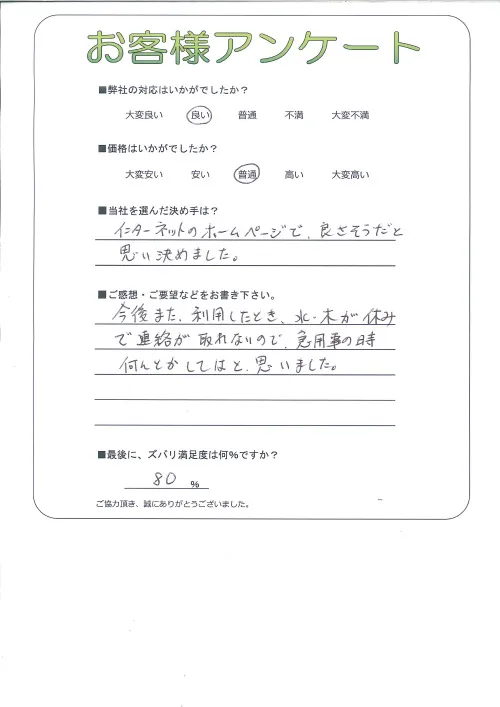 お客様アンケート
■弊社の対応はいかがでしたか？
大変良い 良い 普通 不満 大変不満
■価格はいかがでしたか？
大変安い 安い 普通 高い 大変高い
■当社を選んだ決め手は？
インターネットのホームページで、良さそうだと
思い決めました。
■ご感想・ご要望などをお書き下さい。
今後また、利用したとき、水・木が休み
で連絡が取れないので、急用事の時
何んとかしてはと、思いました。
■最後に、ズバリ満足度は何%ですか？
80 %
ご協力頂き、誠にありがとうございました。